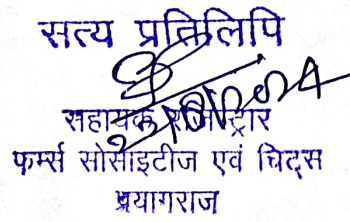 सत्य प्रतिलिपि
सहायक रजिस्ट्रार
फर्म्स सोसाइटीज एवं चिट्स
प्रयागराज